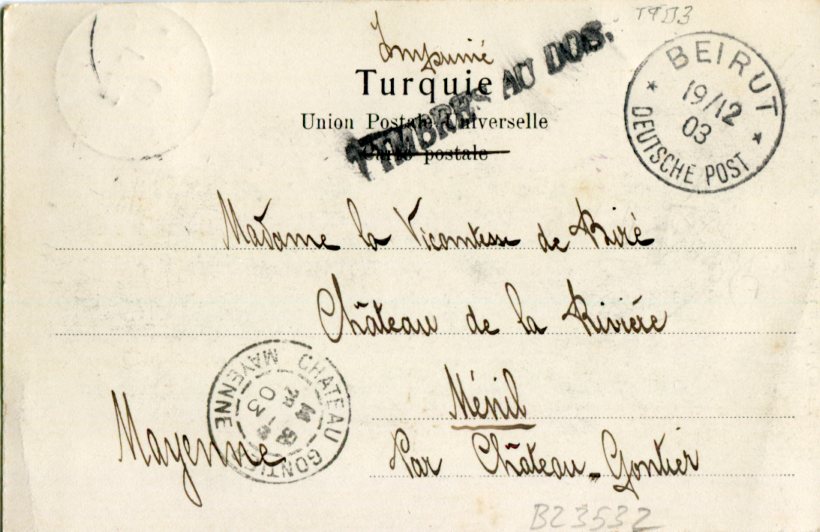 Imprimé
TTD3
Turquie
TIMBRES AU DOS.
Union Postale Universelle
Carte postale
BEIRUT
19/12
03
* DEUTSCHE POST *
Madame la Vicomtesse de Kiré
Château de la Rivière
CHATEAU GONTIER
MAYENNE
03
Ménil
Mayenne
Par Château-Gontier
B23532